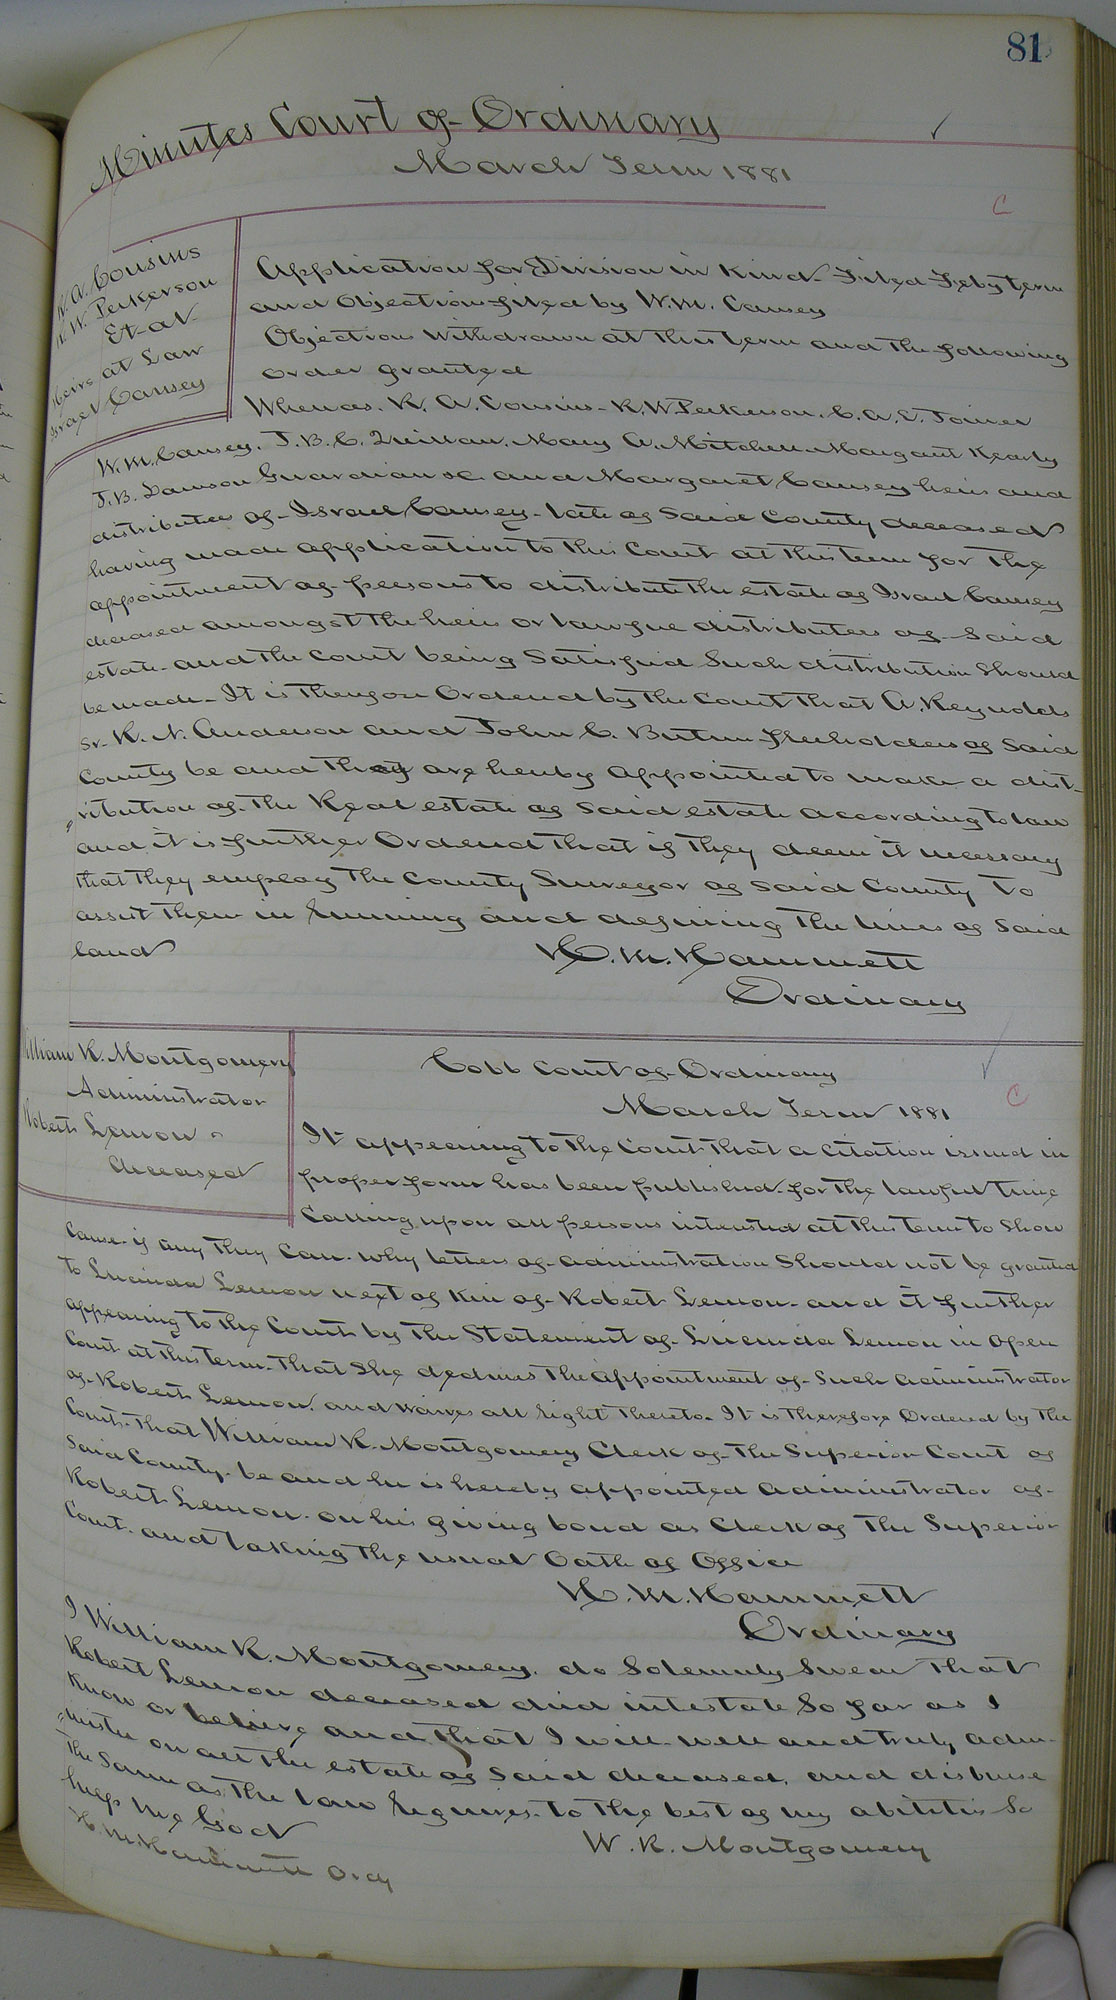 81
Minutes Court of Ordinary
March Term 1881
C
R. A. Cousins
R. W. Perkerson
Et al
Heirs at Law
Israel Causey
Application for Division in Kind Filed Feby term
and Objection filed by W. M. Causey
Objections Withdrawn at this term and the following
order granted
Whereas. R. A. Cousins. R. W. Perkerson. C. A. C. Joiner
W. M. Causey, J. B. C. Quillian, Mary A. Mitchell Margaret Kearly
J. B. Dawson Guardian &c. and Margaret Causey heirs and
distributees of Israel Causey late of Said County deceased
having made application to this Court at this term for the
appointment of persons to distribute the estate of Israel Causey
deceased amongst the heirs or lawful distributees of Said
estate and the Court being Satisfied Such distribution Should
be made. It is therefore Ordered by the Court that A. Reynolds
Sr. R. N. Anderson and John C. freeholders of Said
County be and they are hereby appointed to make a dist-
ribution of the Real estate of Said estate according to law
and it is further Ordered that if they deem it necessary
that they employ the County Surveyor of Said County To
assist them in running and defining the lines of Said
land
H. M. Hammett
Ordinary
William R. Montgomery
Administrator
Robert Lemon
deceased
C
Cobb Court of Ordinary
March Term 1881
It appearing to the Court that a citation issued in
proper form has been published for the lawful time
Calling upon all persons interested at this term to Show
Cause if any they can. why letters of administration Should not be granted
to Lucinda Lemon next of Kin of Robert Lemon and it further
appearing to the Court by the Statement of Lucinda Lemon in open
Court at this term that She declines the appointment of Such administrator
of Robert Lemon. and waives all right thereto. It is therefore Ordered by the
Court. that William R. Montgomery Clerk of the Superior Court of
Said County. be and he is hereby appointed administrator of
Robert Lemon. on his giving bond as Clerk of The Superior
Court. and taking the usual Oath of Office
H. M. Hammett
Ordinary
I William R. Montgomery. do Solemnly Swear that
Robert Lemon deceased died intestate So far as I
know or believe and that I will well and truly adm-
=inister on all the estate of Said deceased, and disburse
the Same as the law requires to the best of my abilities So
help me God
W. R. Montgomery
H. M. Hammett Ordy